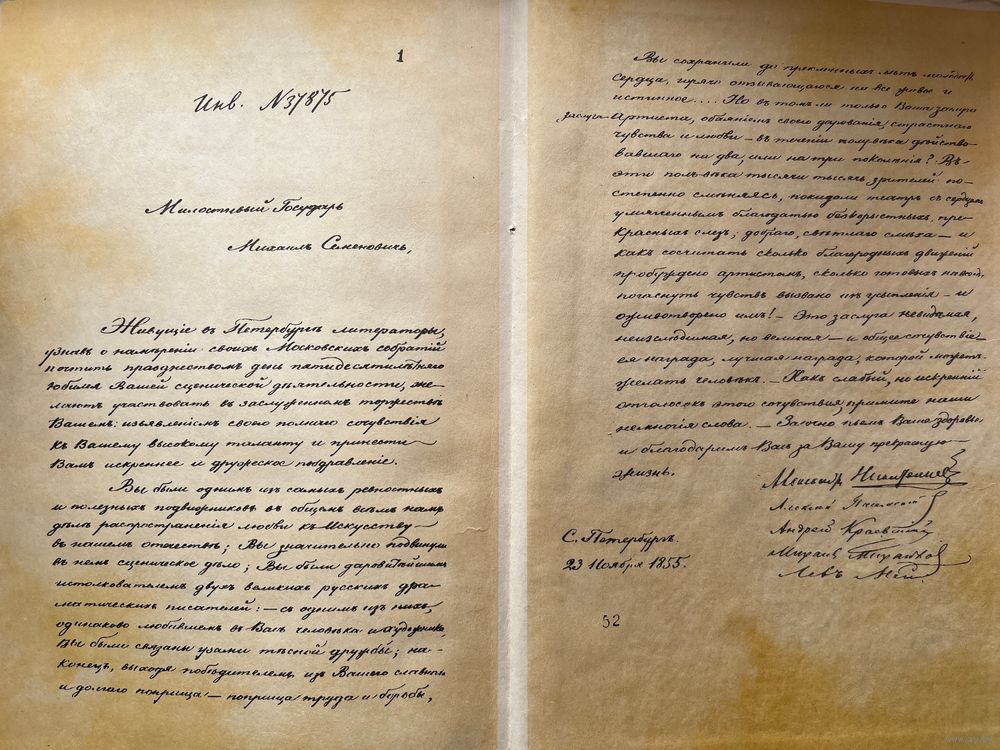 1
Инв. N37875
Милостивый Государь
Михаилъ Семеновичъ,
Живущіе въ Петербургѣ литераторы,
узнавъ о намѣреніи своихъ Московскихъ собратій
почтить празднествомъ день пятидесятилѣтняго
юбилея Вашей сценической дѣятельности, же-
лаютъ участвовать въ заслуженномъ торжествѣ
Вашемъ: изъявленіемъ своего полнаго сочувствія
къ Вашему высокому таланту и принести
Вамъ искреннее и дружеское поздравленіе.
Вы были однимъ изъ самыхъ ревностныхъ
и полезныхъ подвижниковъ въ общемъ всѣмъ намъ
дѣлѣ распространенія любви къ Искусству
въ нашемъ отечествѣ; Вы значительно подвинули
въ немъ сценическое дѣло; Вы были даровитѣйшимъ
истолкователемъ двухъ великихъ русскихъ дра-
матическихъ писателей: — съ однимъ изъ нихъ,
одинаково любившемъ въ Васъ человѣка и художника,
Вы были связаны узами тѣсной дружбы; на-
конецъ, выходя побѣдителемъ изъ Вашего славнаго
и долгаго поприща — поприща труда и борьбы,
Вы сохранили до преклонныхъ лѣтъ молодость
сердца, горячо отзывающагося на все живое и
истинное.... Но въ томъ ли только Ваша
заслуга Артиста, обаяніемъ своего дарованія, страстнаго
чувства и любви — въ теченіи полувѣка дѣйство-
вавшаго на два, или на три поколѣнія? Въ
эти полъ-вѣка тысячи тысячъ зрителей по-
степенно смѣняясь, покидали театръ съ сердцемъ
умягченнымъ благодатью безкорыстныхъ, пре-
красныхъ слезъ; добраго, свѣтлаго смѣха — и
какъ сосчитать сколько благородныхъ движеній
пробуждено артистомъ, сколько готовыхъ навсегда
погаснуть чувствъ вызвано изъ усыпленія — и
оживотворено имъ! — Это заслуга невидимая,
неизслѣдимая, но великая — и общее сочувствіе
ея награда, лучшая награда, которой можетъ
желать человѣкъ. — Какъ слабый, но искренній
отголосокъ этого сочувствія, примите наши
немногія слова. — Заочно пьемъ Ваше здоровье
и благодаримъ Васъ за Вашу прекрасную
жизнь.
Алексѣй Писемскій
Андрей Краевскій
Михаил
Левъ Мей
С. Петербургъ.
23 Ноября 1855.
52